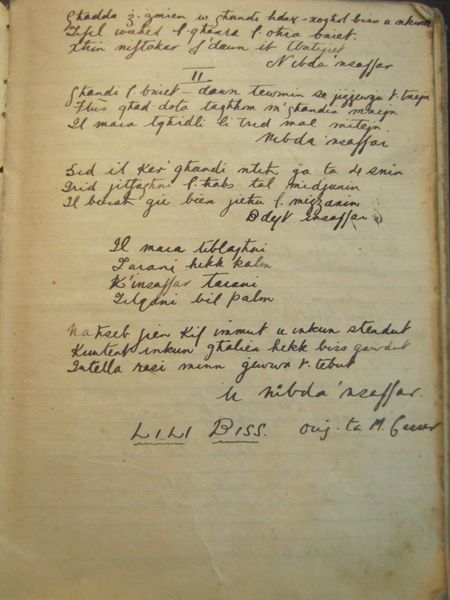 Ghadda ż-żmien w ghandi hdax-xoghol biss u nkunu
Tifel wahed l-ghaxra l-ohra bniet
Xhin niftakar f'dawn it tbatijiet
Nibda 'nsaffar
II
Ghandi l-bniet - dawn tewmin se jizzewgu t-tnejn
Flus ghad dota taghhom m'ghandix mnejn
Il mara tghidli li trid mal mitejn
Nibda 'nsaffar
Sid il ker' ghandi ntih ga ta 4 snin
Irid jitfaghni l-habs tal midjunin
Il biera gie biex jiehu l-mizzanin
Bdejt insaffar
Il mara tiblaghni
Tarani hekk kalm
K'insaffar tarani
Titqani bil palm
Nahseb jien kif immut u inkun stendut
Kuntent inkun ghaliex hekk biss gawdut
Intella rasi minn gewwa t-tebut
U nibda 'nsaffar.
LILI BISS. orig. ta M.